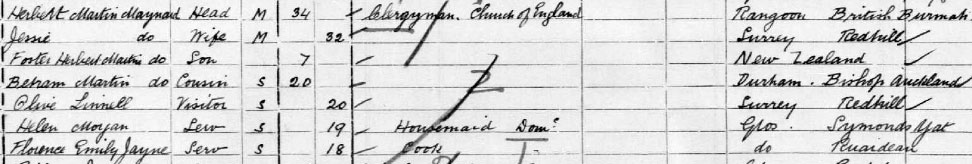 Herbert Martin Maynard Head M 34 Clergyman. Church of England Rangoon British Burmah
Jessie do Wife M 32 Surrey Redhill
Foster Herbert Martin do Son 7 New Zealand
Betram Martin do Cousin S 20 Durham. Bishop Auckland
Olive Linnell Visitor S 20 Surrey Redhill
Helen Morgan Serv S 19 Housemaid Domc Glos. Symonds Yat
Florence Emily Jayne Serv S 18 Cook do Ruardean